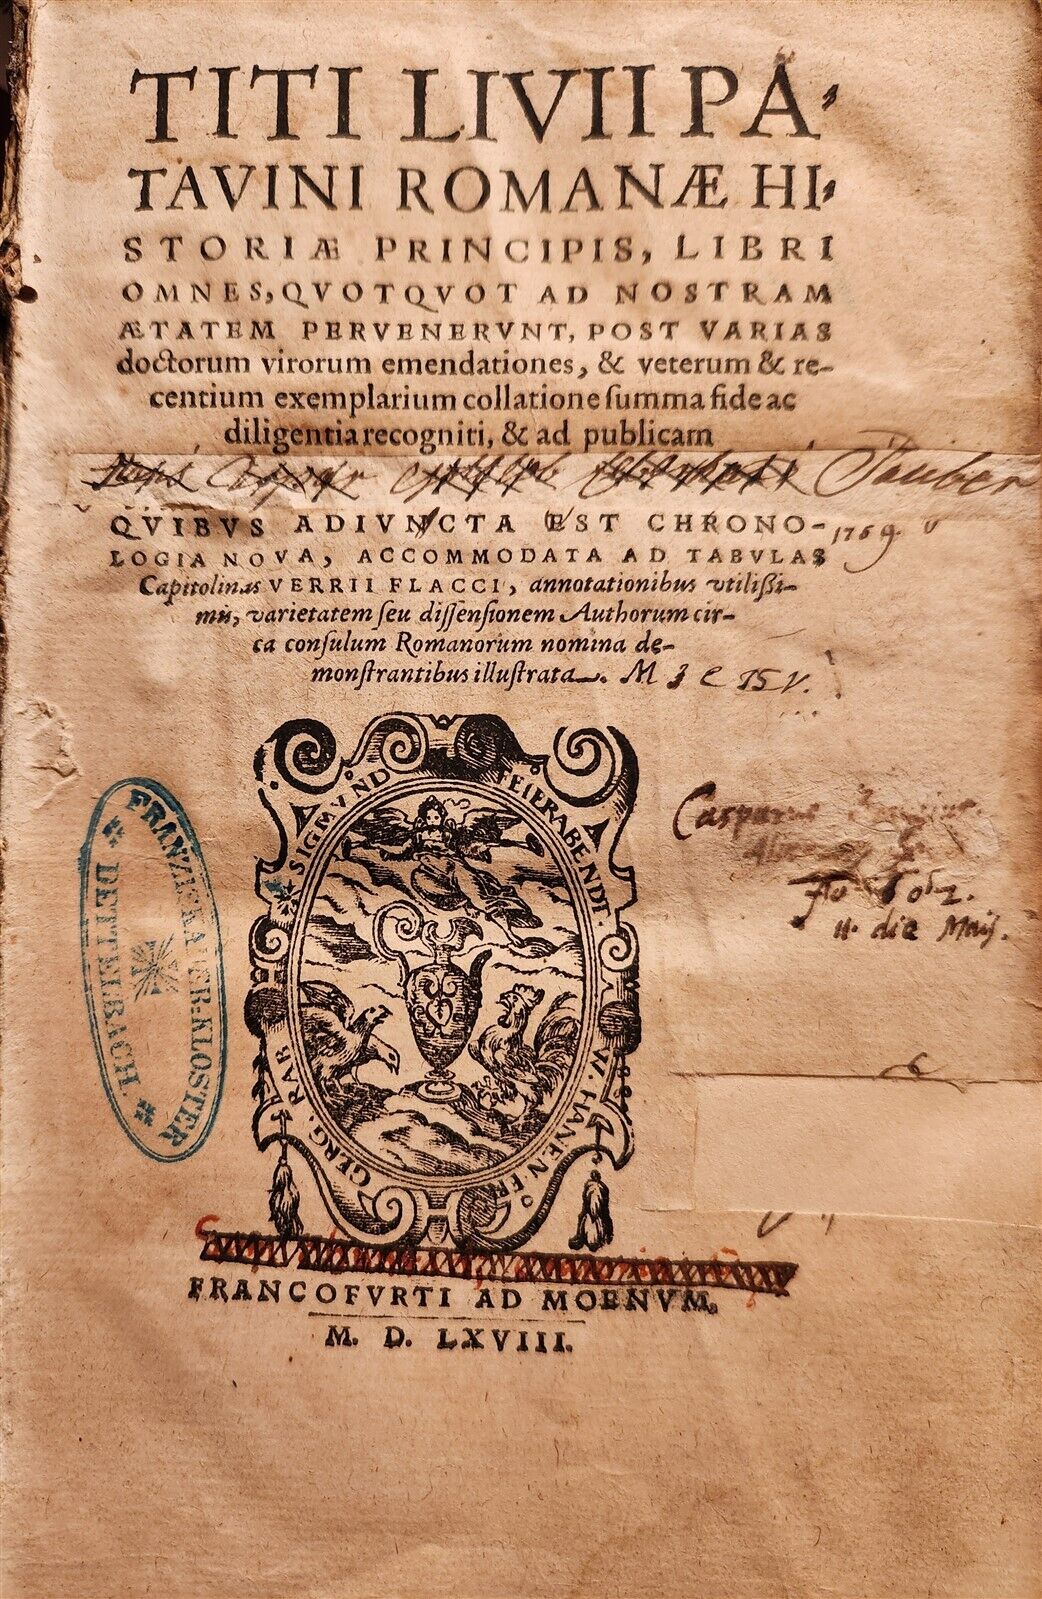 TITI LIVII PA-
TAVINI ROMANÆ HI-
STORIÆ PRINCIPIS, LIBRI
OMNES, QVOTQVOT AD NOSTRAM
ÆTATEM PERVENERVNT, POST VARIAS
doctorum virorum emendationes, & veterum & re-
centium exemplarium collatione ſumma fide ac
diligentia recogniti, & ad publicam
Tauber
1769.
QVIBVS ADIVNCTA EST CHRONO-
LOGIA NOVA, ACCOMMODATA AD TABVLAS
Capitolinas VERRII FLACCI, annotationibus vtiliſsi-
mis, varietatem ſeu diſſenſionem Authorum cir-
ca conſulum Romanorum nomina de-
monſtrantibus illuſtrata.
SIGMVND FEIERABENDT
GERG. RAB
W. HANEN ER
FRANZISKANER-KLOSTER
DETTELBACH.
Casparus
11. die Maij.
FRANCOFVRTI AD MOENVM,
M. D. LXVIII.